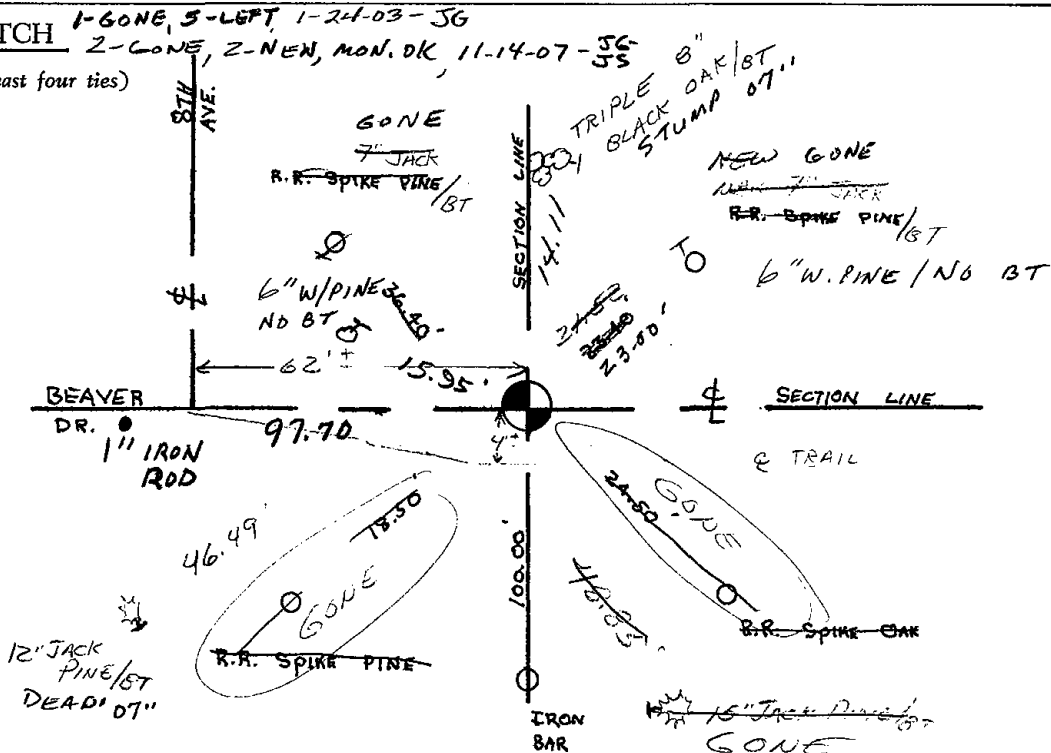 TCH 1-GONE, 5-LEFT, 1-24-03-JG
2-GONE, 2-NEW, MON. OK, 11-14-07-JG
JS
ast four ties)
8TH AVE.
GONE
7" JACK
R.R. SPIKE PINE/BT
SECTION LINE
TRIPLE 8"
BLACK OAK/BT
STUMP 07"
14.11
NEW GONE
7" JACK
R.R. SPIKE PINE/BT
6" W. PINE / NO BT
6" W/PINE
NO BT
36.40'
23.00'
62'±
15.95'
BEAVER
DR.
1" IRON
ROD
97.70
4'±
℄
SECTION LINE
℄ TRAIL
46.49'
18.50
GONE
R.R. SPIKE PINE
12" JACK
PINE/BT
DEAD' 07"
100.00'
IRON
BAR
24.50'
GONE
R.R. SPIKE OAK
48.85'
15" JACK PINE/BT
GONE